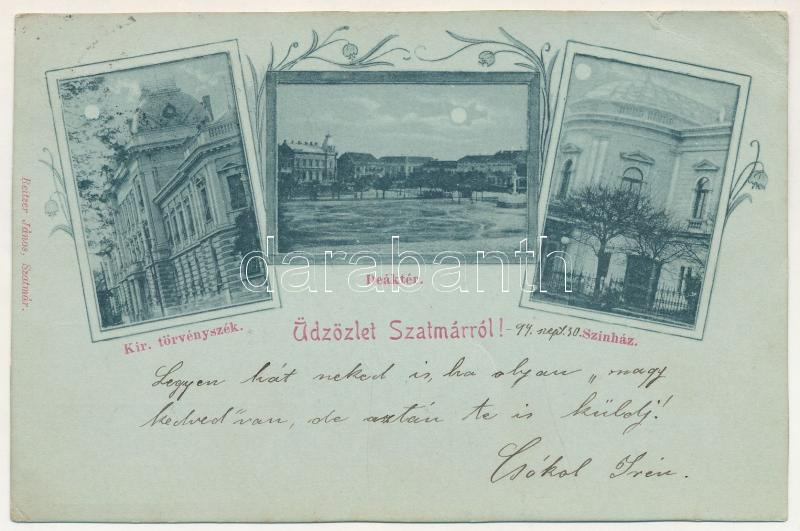 Reitzer János, Szatmár.
Kir. törvényszék.
Deáktér.
Színház.
Üdzözlet Szatmárról! -99. sept. 30.
Legyen hát neked is, ha olyan „nagy
kedved" van, de aztán te is küldj!
Csókol Irén.
darabanth
.com